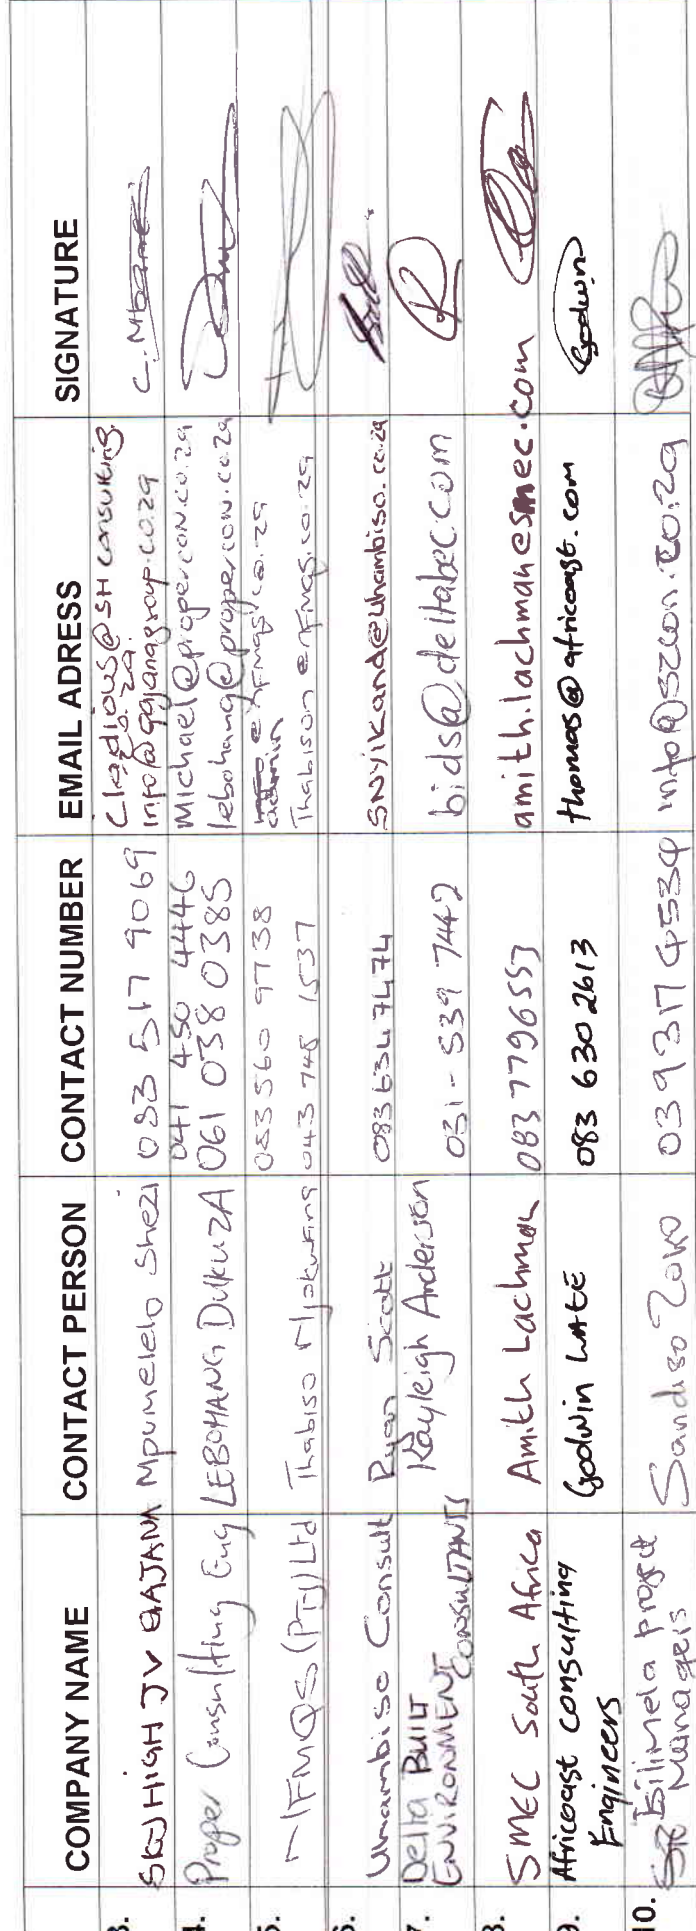 COMPANY NAME CONTACT PERSON CONTACT NUMBER EMAIL ADRESS SIGNATURE
3. SKY HIGH JV GAJANA Mpumelelo Shezi 083 517 9069 Cladious@SH consulting.co.za C. Mbanje
info@gajanagroup.co.za
4. Proper Consulting Eng LEBOHANG DUKUZA 041 450 4446 Michael@propercon.co.za
061 038 0385 lebohang@propercon.co.za
5. (PTY) Ltd Thabiso 083 560 9738 admin
043 748 1537
6. Uhambiso Consult Ryan Scott 0836347474 SNyikana@uhambiso.co.za
7. Delta BUILT ENVIRONMENT CONSULTANTS Kayleigh Anderson 031-539 7442 bids@deltabec.com
8. SMEC South Africa Amith Lachman 083 7796553 amith.lachman@smec.com
9. Africoast consulting Engineers Godwin 083 630 2613 thomas@africoast.com Godwin
10. Isilimela project Managers Sandiso Zoko 039 317 4534 info@szcon.co.za